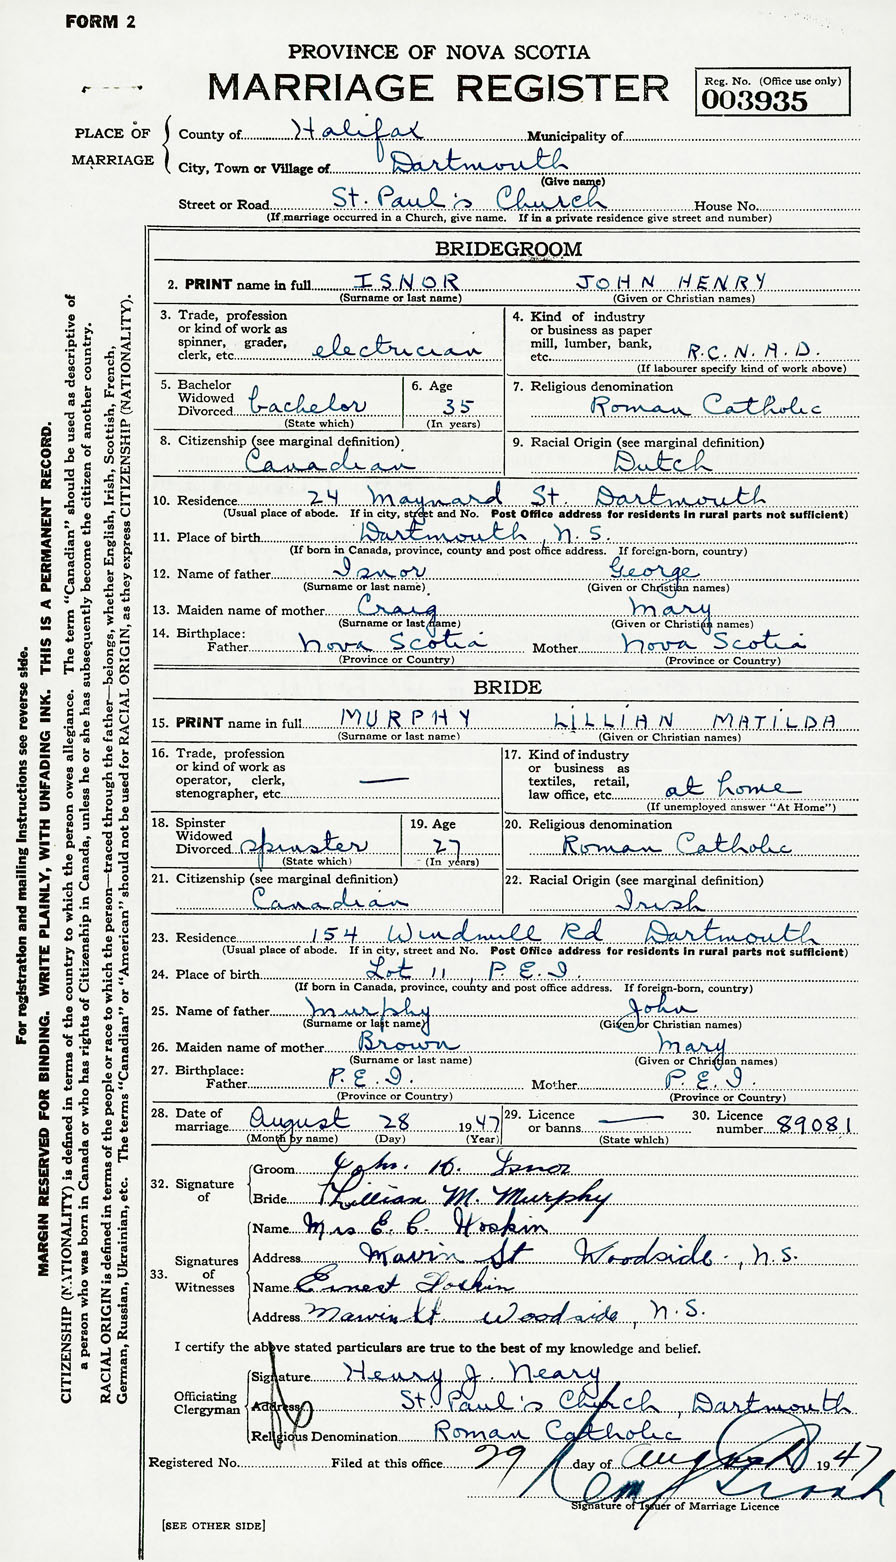 FORM 2
PROVINCE OF NOVA SCOTIA
MARRIAGE REGISTER
Reg. No. (Office use only)
003935
PLACE OF MARRIAGE
County of Halifax Municipality of
City, Town or Village of Dartmouth
(Give name)
Street or Road St. Paul's Church House No.
(If marriage occurred in a Church, give name. If in a private residence give street and number)
BRIDEGROOM
2. PRINT name in full ISNOR JOHN HENRY
(Surname or last name) (Given or Christian names)
3. Trade, profession or kind of work as spinner, grader, clerk, etc. electrician
4. Kind of industry or business as paper mill, lumber, bank, etc. R.C.N.A.D.
(If labourer specify kind of work above)
5. Bachelor Widowed Divorced bachelor
(State which)
6. Age 35
(In years)
7. Religious denomination Roman Catholic
8. Citizenship (see marginal definition) Canadian
9. Racial Origin (see marginal definition) Dutch
10. Residence 24 Maynard St. Dartmouth
(Usual place of abode. If in city, street and No. Post Office address for residents in rural parts not sufficient)
11. Place of birth Dartmouth, N.S.
(If born in Canada, province, county and post office address. If foreign-born, country)
12. Name of father Isnor George
(Surname or last name) (Given or Christian names)
13. Maiden name of mother Craig Mary
(Surname or last name) (Given or Christian names)
14. Birthplace:
Father Nova Scotia Mother Nova Scotia
(Province or Country) (Province or Country)
BRIDE
15. PRINT name in full MURPHY LILLIAN MATILDA
(Surname or last name) (Given or Christian names)
16. Trade, profession or kind of work as operator, clerk, stenographer, etc. —
17. Kind of industry or business as textiles, retail, law office, etc. at home
(If unemployed answer "At Home")
18. Spinster Widowed Divorced spinster
(State which)
19. Age 27
(In years)
20. Religious denomination Roman Catholic
21. Citizenship (see marginal definition) Canadian
22. Racial Origin (see marginal definition) Irish
23. Residence 154 Windmill Rd Dartmouth
(Usual place of abode. If in city, street and No. Post Office address for residents in rural parts not sufficient)
24. Place of birth Lot 11, P.E.I.
(If born in Canada, province, county and post office address. If foreign-born, country)
25. Name of father Murphy John
(Surname or last name) (Given or Christian names)
26. Maiden name of mother Brown Mary
(Surname or last name) (Given or Christian names)
27. Birthplace:
Father P.E.I. Mother P.E.I.
(Province or Country) (Province or Country)
28. Date of marriage August 28 1947
(Month by name) (Day) (Year)
29. Licence or banns —
(State which)
30. Licence number 89081
32. Signature of
Groom John H. Isnor
Bride Lillian M. Murphy
33. Signatures of Witnesses
Name Mrs E. C. Hoskin
Address Mavin St Woodside, N.S.
Name Ernest Hoskin
Address Mavin St. Woodside, N.S.
I certify the above stated particulars are true to the best of my knowledge and belief.
Officiating Clergyman
Signature Henry J. Neary
Address St. Paul's Church, Dartmouth
Religious Denomination Roman Catholic
Registered No. Filed at this office 29 day of August 1947
Signature of Issuer of Marriage Licence
[SEE OTHER SIDE]
For registration and mailing instructions see reverse side.
MARGIN RESERVED FOR BINDING. WRITE PLAINLY, WITH UNFADING INK. THIS IS A PERMANENT RECORD.
CITIZENSHIP (NATIONALITY) is defined in terms of the country to which the person owes allegiance. The term "Canadian" should be used as descriptive of
a person who was born in Canada or who has rights of Citizenship in Canada, unless he or she has subsequently become the citizen of another country.
RACIAL ORIGIN is defined in terms of the people or race to which the person—traced through the father—belongs, whether English, Irish, Scottish, French,
German, Russian, Ukrainian, etc. The terms "Canadian" or "American" should not be used for RACIAL ORIGIN, as they express CITIZENSHIP (NATIONALITY).